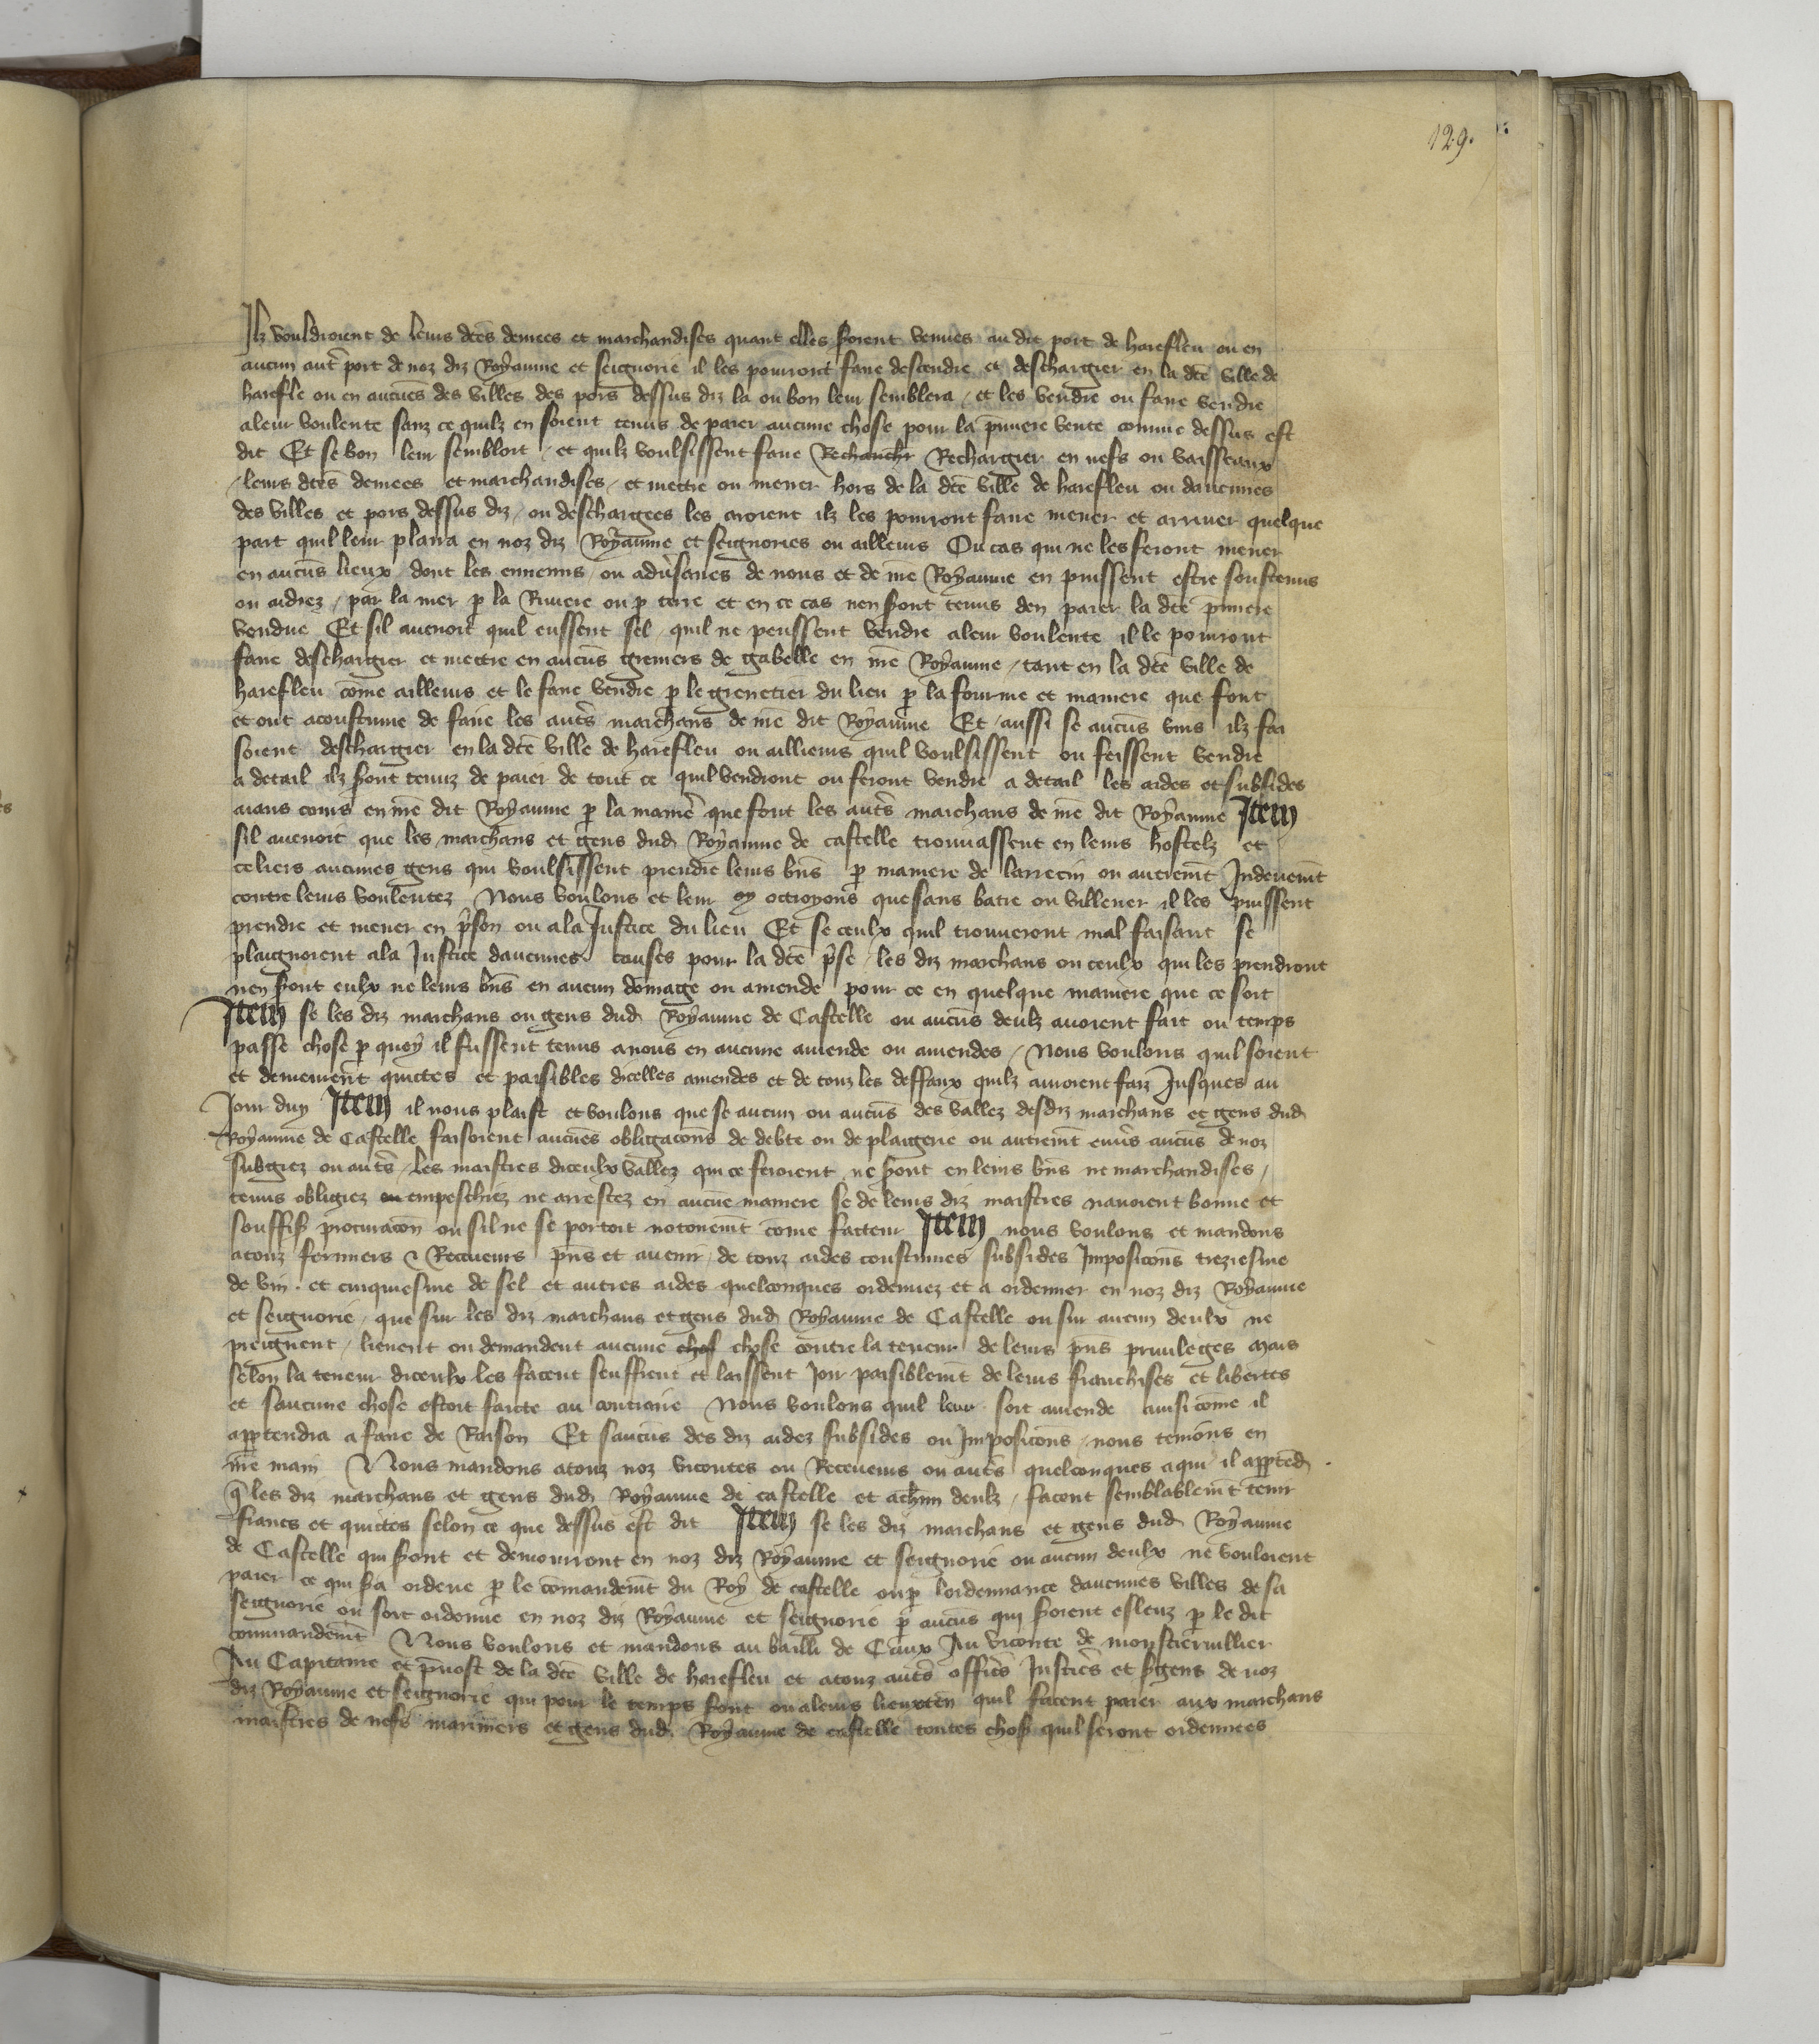 129.
Ilz vouldroient de leurs dcēs denrees et marchandises quant elles seroient venues au dit port de harefleu ou en
aucun autr̄ port de noz diz Royaume et seignorie il les pourront faire descendre et deschargier en la dcē ville de
harefle ou en aucuēs des villes des pors dessus diz la ou bon leur semblera / et les vendre ou faire vendre
aleur voulente sanz ce quilz en soient tenus de paier aucune chose pour la p̄miere vente comme dessus est
dit Et se bon leur sembloit / et quilz voulsissent faire Rechargier en nefs ou vaisseaux
leurs dcēs denrees et marchandises / et mettre ou mener hors de la dcē ville de harefleu ou daucunes
des villes et pors dessus diz / ou deschargees les aroient ilz les pourront faire mener et arriver quelque
part quil leur plaira en noz diz Royaume et seignories ou ailleurs Ou cas qui ne les feront mener
en aucūs lieux / dont les ennemis / ou adūsaires de nous et de nrē Royaume en puissent estre soustenus
ou aidiez / par la mer p̲ la Riviere ou p̲ terre et en ce cas nen seront tenus den paier la dcē p̄miere
vendue Et sil avenoit quil eussent sel / quil ne peussent vendre aleur voulente il le pourront
faire deschargier et mettre en aucūs greniers de gabelle en nrē Royaume / tant en la dcē ville de
harefleu cōme ailleurs et le faire vendre p̲ le grenetier du lieu p̲ la fourme et maniere que font
et ont acoustume de faire les autrēs marchans de nrē dit Royaume Et aussi se aucūs vins ilz fai
soient deschargier en la dcē ville de harefleu ou ailleurs quil voulsissent ou feissent vendre
a detail ilz seront tenuz de paier de tout ce quil vendront ou feront vendre a detail les aides et subsides
aians cours en nrē dit Royaume p̲ la manier̄ que font les autrēs marchans de nrē dit Royaume Item
sil avenoit que les marchans et gens dud Royaume de castelle trouvassent en leurs hostelz et
celiers aucunes gens qui voulsissent prendre leurs biēs p̲ maniere de larrecin ou autremt̄ Indeuemt̄
contre leurs voulentez Nous voulons et leur octroyons que sans batre ou villener il les puissent
prendre et mener en p̄son ou ala Justice du lieu Et se ceulx quil trouveront mal faisant se
plaignoient ala Justice daucunes causes pour la dcē p̄se / les diz marchans ou ceulx qui les prendront
nen seront eulx ne leurs biēs en aucun dōmage ou amende pour ce en quelque maniere que ce soit
Item se les diz marchans ou gens dud Royaume de Castelle ou aucūs deulz avoient fait ou temps
passe chose p̲ quoy il fussent tenus anous en aucune amende ou amendes / Nous voulons quil soient
et demeurent quictes et paisibles dicelles amendes et de touz les deffaux quilz auroient faiz Jusques au
Jour duy Item il nous plaist et voulons que se aucun ou aucūs des vallez desdiz marchans et gens dud
Royaume de Castelle faisoient aucuēs obligacōns de debte ou de plaigerie ou autremt̄ envers aucūs de noz
subgiez ou autrēs / les maistres diceulx vallez qui ce feroient ne seront en leurs biēs ne marchandises /
tenus obligiez empeschiez ne arrestez en aucuē maniere se de leurs diz maistres navoient bonne et
souffiss̄ procuracōn ou sil ne se portoit notoiremt̄ cōme facteur Item nous voulons et mandons
atouz fermiers & Receveurs p̄ns et avenir / de touz aides coustumes subsides Imposicōns treziesme
de vin et cinquiesme de sel et autres aides quelconques ordennez et a ordenner en noz diz Royaume
et seignorie / que sur les diz marchans et gens dud Royaume de Castelle ou sur aucun deulx ne
preignent / lievent ou demandent aucune chose contre la teneur de leurs p̄ns privileges Mais
selon la teneur diceulx les facent seuffrent et laissent Joir paisiblemt̄ de leurs franchises et libertes
et saucune chose estoit faicte au contraire Nous voulons quil leur soit amende ainsi cōme il
appartendra a faire de Raison Et saucūs des diz aidez subsides ou Imposicōns / nous tenions en
nrē main Nous mandons atouz noz vicontes ou Receveurs ou autrēs quelconques aqui il apptēd
q̄ les diz marchans et gens dud Royaume de castelle et achūn deulz / facent semblablemt̄ tenir
francs et quictes selon ce que dessus est dit Item se les diz marchans et gens dud Royaume
de Castelle qui sont et demourront en noz diz Royaume et seignorie ou aucun deulx ne vouloient
paier ce qui sera ordene p̲ le cōmandemt̄ du Roy de castelle ou p̲ lordennance daucunes villes de sa
seignorie ou soit ordenne en noz diz Royaume et seignorie p̲ aucūs qui seroient esleuz p̲ le dit
commandemt̄ Nous voulons et mandons au bailli de Caux Au viconte de monstiervillier
Au Capitaine et p̄vost de la dcē ville de harefleu et atouz autrēs officīs Justicīs et sergens de noz
diz Royaume et seignorie qui pour le temps sont ou aleurs lieuxten̄ quil facent paier aux marchans
maistres de nefs mariniers et gens dud Royaume de castelle toutes choses quil seront ordennees